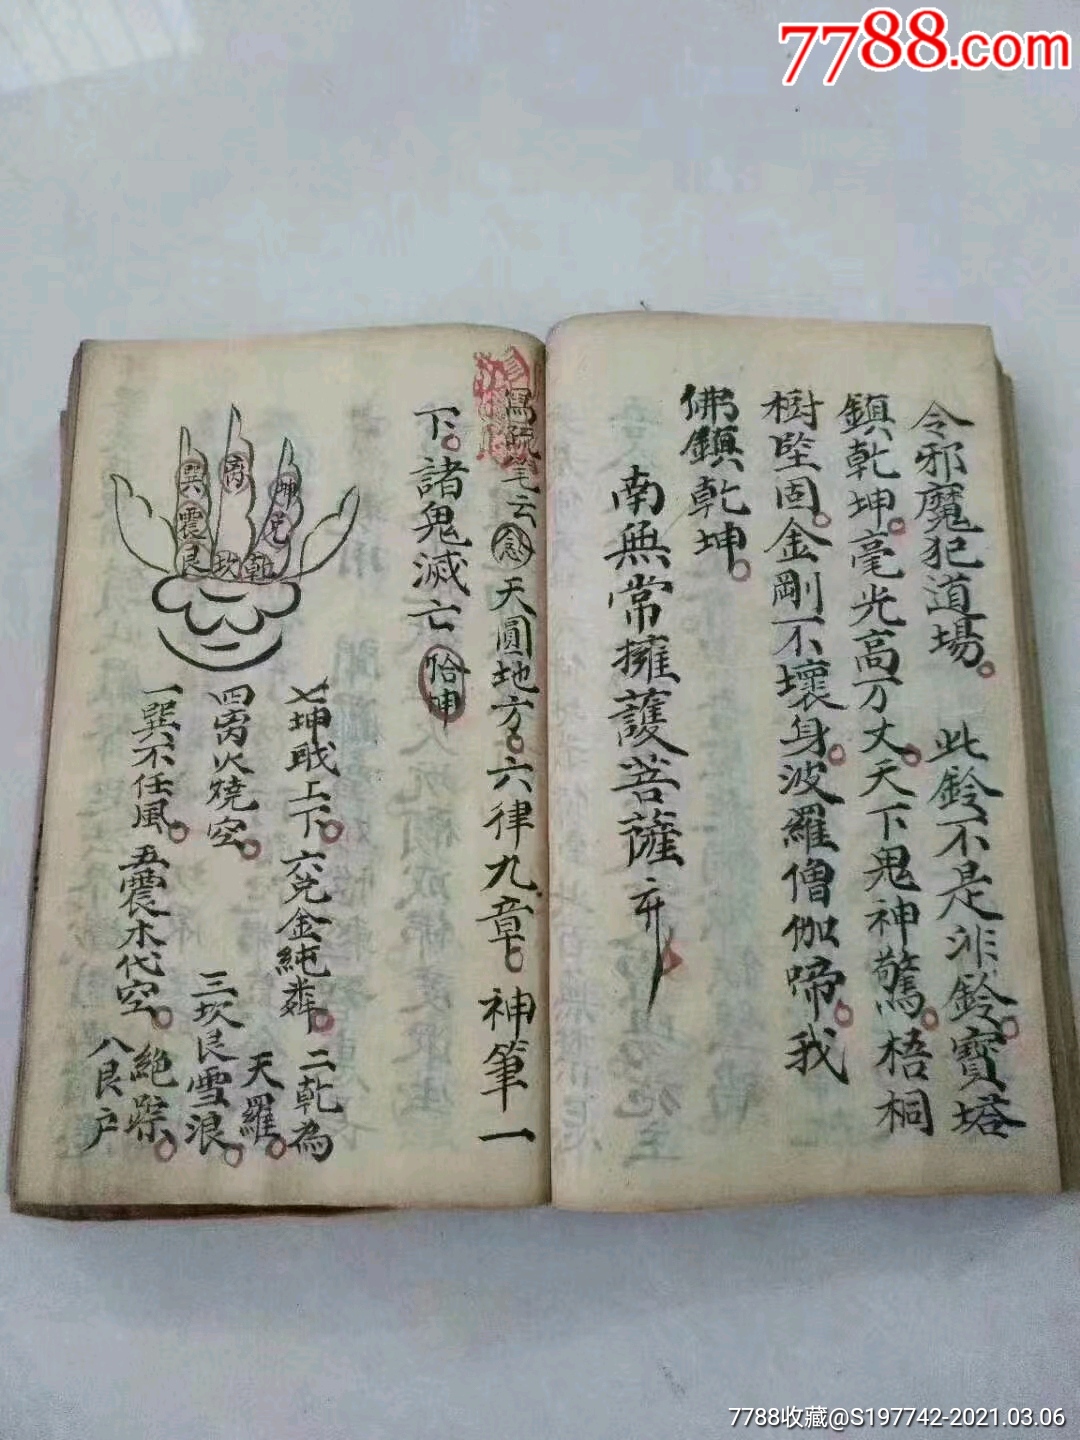 7788.com
令邪魔犯道場。 此鈴不是非鈴。寶塔
鎮乾坤。毫光高万丈。天下鬼神驚。梧桐
樹堅固。金剛不壞身。波羅僧伽啼。我
佛鎮乾坤。
南無常擁護菩薩
筆云 念 天圓地方。六律九章。神筆一
下。諸鬼滅亡
巽 离 坤
震 兌
艮 坎 乾
七坤戰上下。六兌金純 二乾為
天羅。
四离火燒空。 三坎艮雪浪。
一巽不任風。五震木代空。 絕踪。
八艮户
7788收藏@S197742-2021.03.06